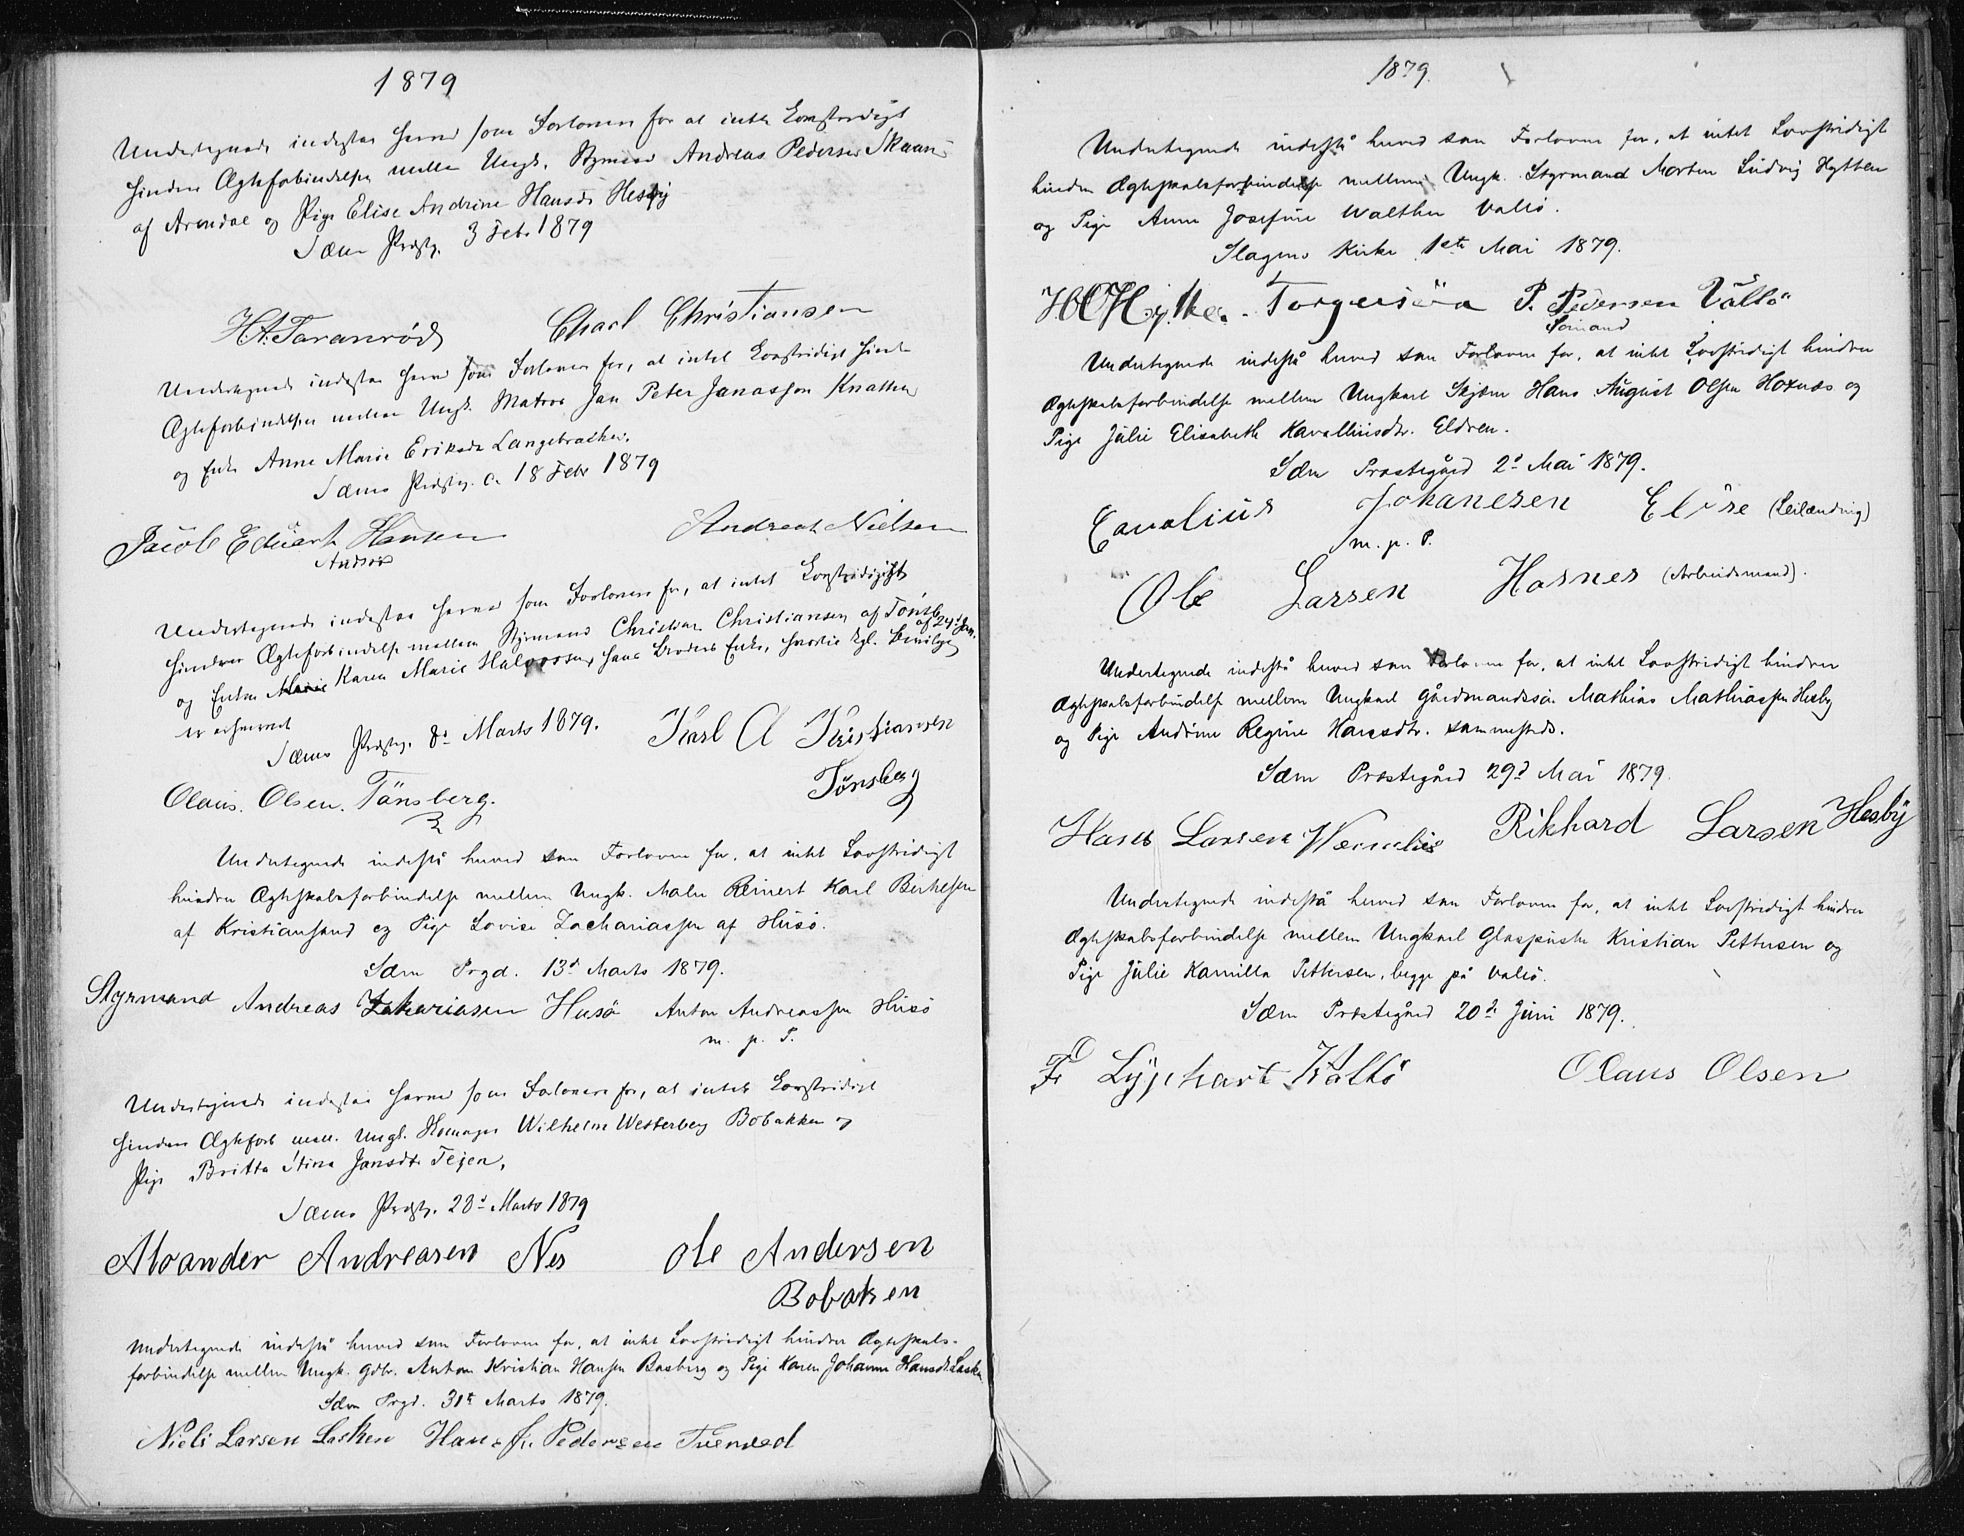 1879
Undertegnede indestaa herved som Forlovere for at intet Lovstridigt
hindrer Ægteforbindelsen mellem Ungk. Styrmand Andreas Pedersen Skaan
af Arendal og Pige Elise Andrine Hansdr Hesby
Sæms Prdstg. 3 Febr 1879
H.A. Taranrød Charl Christiansen
Undertegnede indestaa herved som Forlovere for, at intet Lovstridigt hindrer
Ægteforbindelsen mellem Ungk. Matros Jan Peter Janasson Knatten
og Enke Anne Marie Eriksdr Langebrække.
Sæms Prdstg. d. 18 Febr 1879
Jacob Eduart Hansen Andreas Nielsen
Undertegnede indestaa herved som Forlovere for, at intet Lovstridigt
hindrer Ægteforbindelse mellem Styrmand Christian Christiansen af Tönsb.
og Enken Marie Karen Marie Halvorsen, hans Broders Enke, hvortil Kgl. Bevilge af 24de Jan.
er erhvervet
Sæms Prdstg. 8de Marts 1879. Karl A Kristiansen
Olaus. Olsen. Tänsberg. Tönsberg
Undertegnede indestå herved som Forlovere for, at intet Lovstridigt
hindrer Ægteskabsforbindelse mellem Ungk. Maler Reinert Karl Berthelsen
af Kristiansand og Pige Lovise Zachariassen af Husö.
Sæm Prgd. 13d Marts 1879.
Styrmand Andreas Zakariasen Husö Anton Andreassen Husö
m. p. P.
Undertegnede indestaa herved som Forlovere for, at intet Lovstridigt
hindrer Ægteforb mell. Ungk. Wilhelm Westerberg Bobakken og
Pige Britta Stina Jansdtr Teien.
Sæms Prdstg. 28d Marts 1879
Alxander Andreasen Nes Ole Andersen
Bobaken
Undertegnede indestå herved som Forlovere for, at intet Lovstridigt hindrer Ægteskabs-
forbindelse mellem Ungk. Gdbr. Anton Kristian Hansen Basberg og Pige Karen Johanne Hansdtr. Lasken
Sæm Prgd. 31te Marts 1879.
Niels Larsen Lasken Hans Jr. Pedersen Tuenved
1879.
Undertegnede indestå herved som Forlovere for, at intet Lovstridigt
hindrer Ægteskabsforbindelse mellem Ungk. Styrmand Morten Ludvig Hytten
og Pige Anne Josefine Walther Vallö.
Slagens Kirke 1ste Mai 1879.
H O Hytten. P. Pedersen Vallö
Sömand
Undertegnede indestå herved som Forlovere for, at intet Lovstridigt hindrer
Ægteskabsforbindelse mellem Ungkarl Hans August Olsen Hoxnæs og
Pige Julie Elisabeth Kavalliusdtr. Eldren.
Sæm Præstegård 2d Mai 1879.
Cavalius Johanesen Eldre (Leilænding)
m. p. P.
Ole Larsen Hasnes (Arbeidsmand).
Undertegnede indestå herved som Forlovere for, at intet Lovstridigt hindrer
Ægteskabsforbindelse mellem Ungkarl Gårdmandssön Mathias Mathiassen Hesby
og Pige Andrine Regine Hansdtr. sammesteds.
Sæm Præstegård 29d Mai 1879.
Hans Larsen Rikhard Larsen Hesbÿ
Undertegnede indestå herved som Forlovere for, at intet Lovstridigt hindrer
Ægteskabsforbindelse mellem Ungkarl Glaspuster Kristian Pettersen og
Pige Julie Kamilla Pettersen, begge på Vallö.
Sæm Præstegård 20d Juni 1879.
Fr Lÿphart Vallö Olaus Olsen